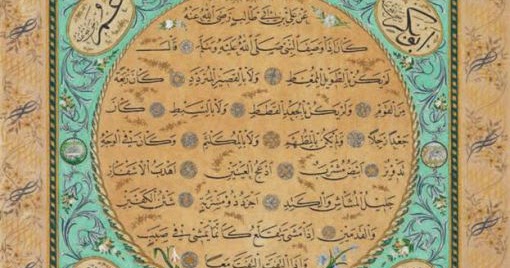 أبو بكر
عمر
عن علي بن أبي طالب رضي الله عنه
كان إذا وصف النبي صلى الله عليه وسلم قال
لم يكن بالطويل الممغط ولا بالقصير المتردد كان ربعة
من القوم ولم يكن بالجعد القطط ولا بالسبط كان
جعدا رجلا ولم يكن بالمطهم ولا بالمكلثم وكان في الوجه
تدوير أبيض مشرب أدعج العينين أهدب الأشفار
جليل المشاش والكتد أجرد ذو مسربة شثن الكفين
والقدمين إذا مشى يتقلع كأنما يمشي في صبب
وإذا التفت التفت معا